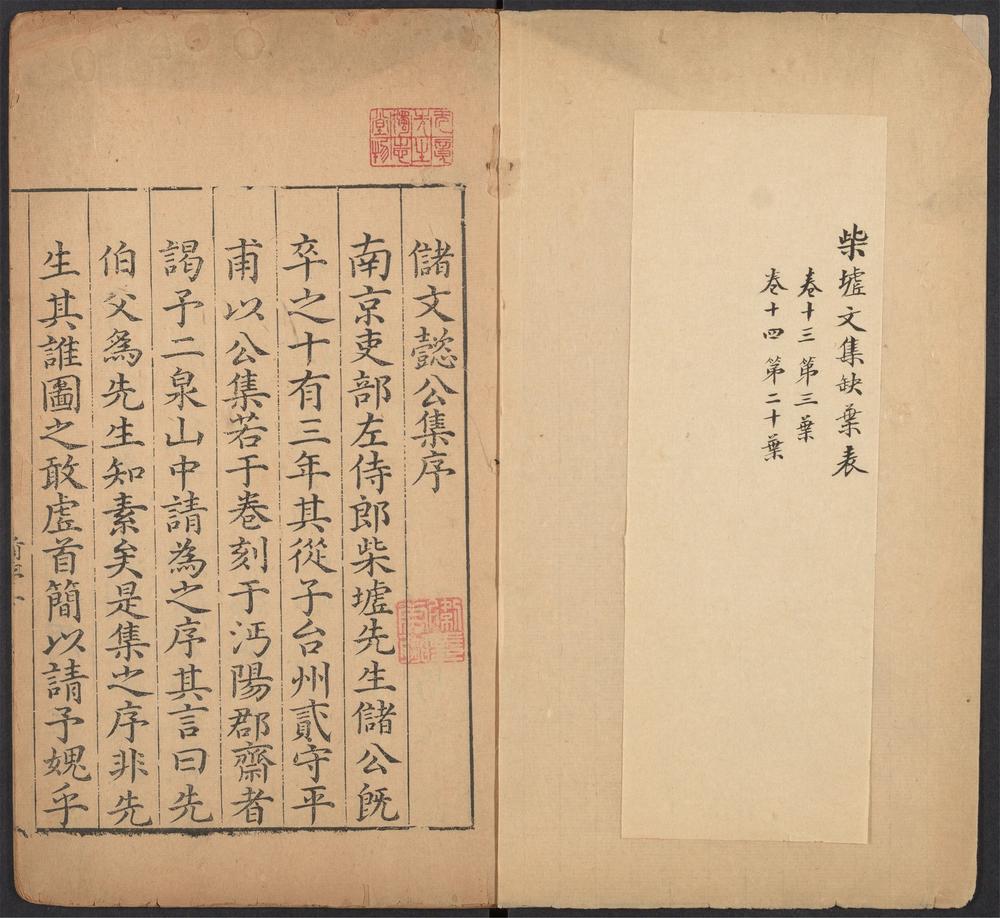 柴墟文集缺葉表
卷十三 第三葉
卷十四 第二十葉
儲文懿公集序
南京吏部左侍郎柴墟先生儲公既
卒之十有三年其從子台州貳守平
甫以公集若干卷刻于沔陽郡齋者
謁予二泉山中請為之序其言曰先
伯父為先生知素矣是集之序非先
生其誰圖之敢虛首簡以請予媿乎